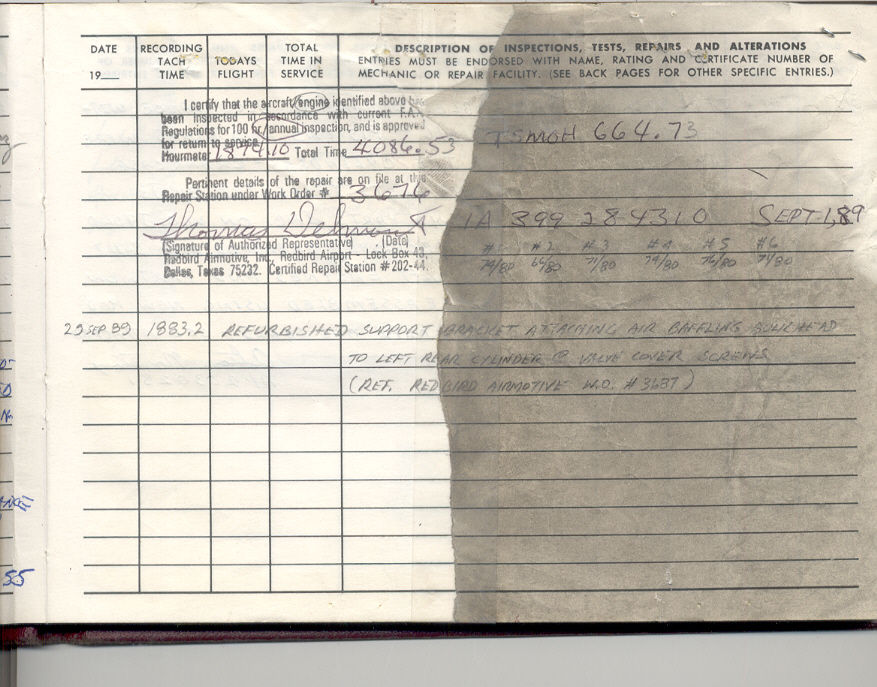 DATE
19__
RECORDING
TACH
TIME
TODAYS
FLIGHT
TOTAL
TIME IN
SERVICE
DESCRIPTION OF INSPECTIONS, TESTS, REPAIRS AND ALTERATIONS
ENTRIES MUST BE ENDORSED WITH NAME, RATING AND CERTIFICATE NUMBER OF
MECHANIC OR REPAIR FACILITY. (SEE BACK PAGES FOR OTHER SPECIFIC ENTRIES.)
I certify that the aircraft/engine identified above has
been inspected in accordance with current F.A.A.
Regulations for 100 hr/annual inspection, and is approved
for return to service.
TSMOH 664.73
Hourmeter 1874.10 Total Time 4086.53
Pertinent details of the repair are on file at this
Repair Station under Work Order # 3676
Thomas IA 399 284310 SEPT-1,89
(Signature of Authorized Representative) (Date)
#2 #3 #4 #5 #6
Redbird Airmotive, Inc., Redbird Airport - Lock Box 43,
Dallas, Texas 75232. Certified Repair Station #202-44.
74/80 66/80 71/80 74/80 76/80 74/80
SEP 89 1883.2 REFURBISHED SUPPORT BRACKET ATTACHING AIR BAFFLING BULKHEAD
TO LEFT REAR CYLINDER @ VALVE COVER SCREWS
(REF. REDBIRD AIRMOTIVE W.O. #3687)
55